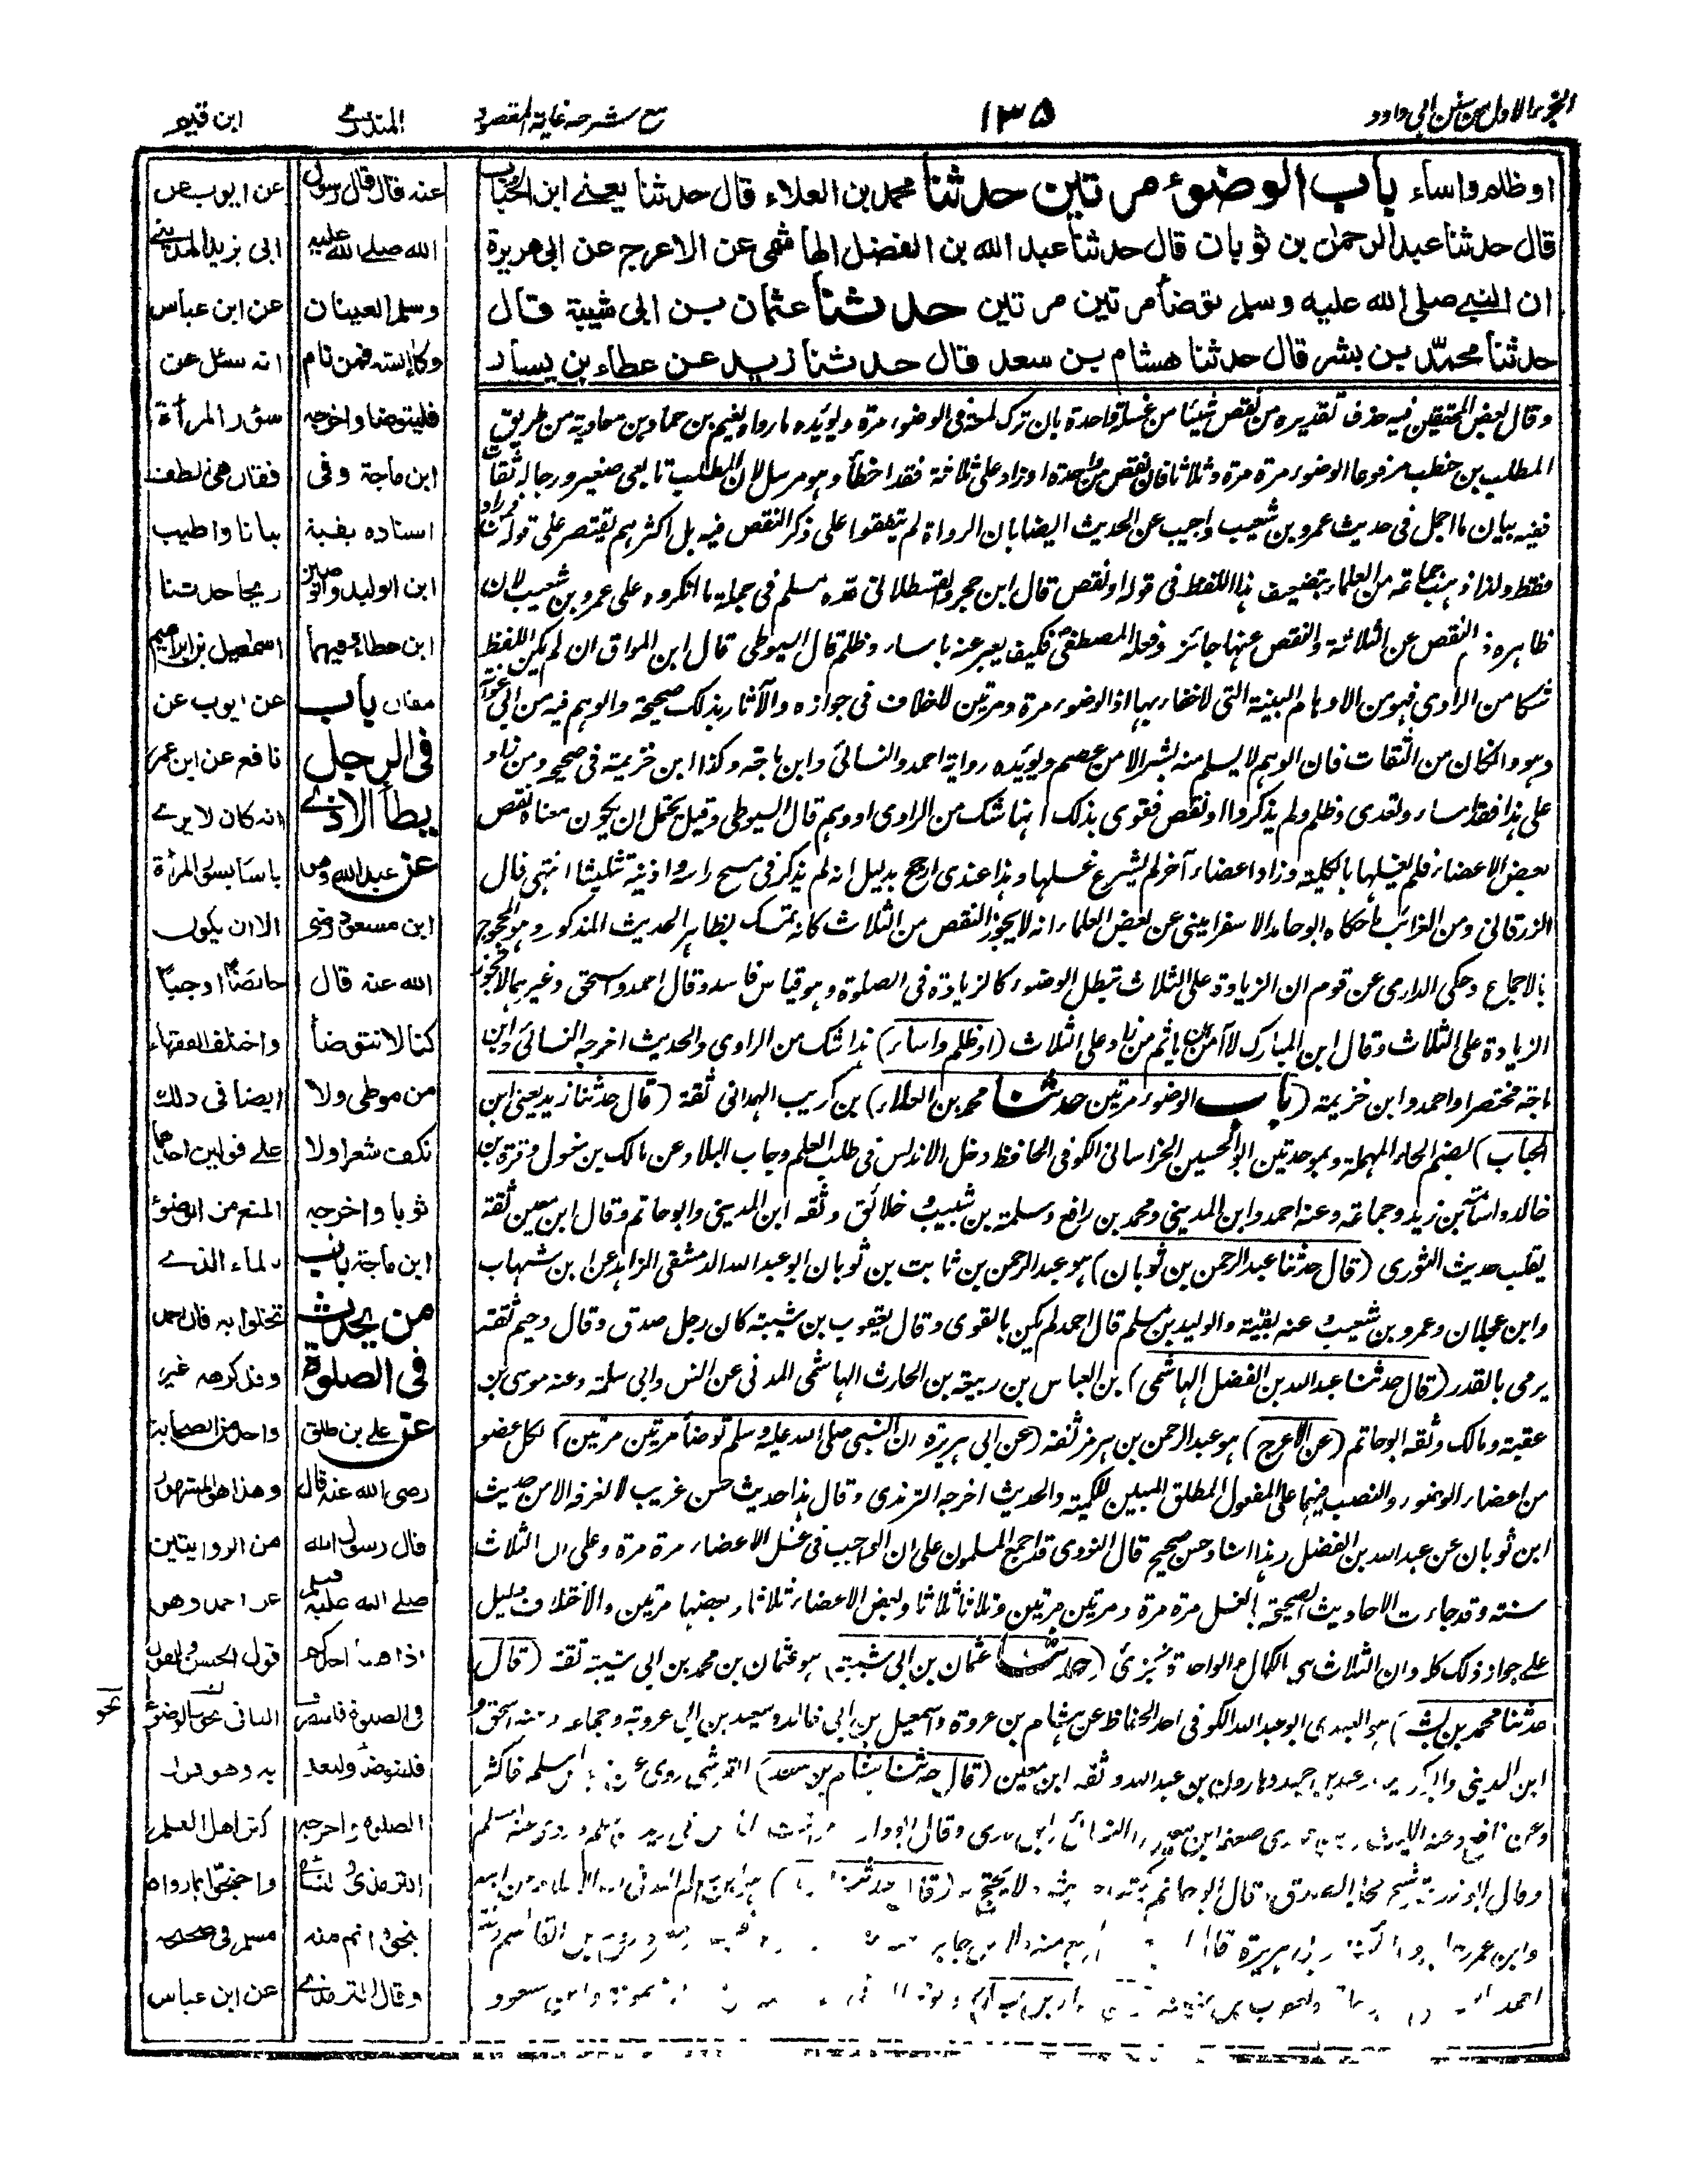 الجزء الاول من سنن ابي داود
١٣٥
مع شرحه غاية المقصود
المنذري
ابن قيم
او ظلم واساء باب الوضوء مرتين حدثنا محمد بن العلاء قال حدثنا يعني ابن الحباب
قال حدثنا عبد الرحمن بن ثوبان قال حدثنا عبد الله بن الفضل الهاشمي عن الاعرج عن ابي هريرة
ان النبي صلى الله عليه وسلم توضأ مرتين مرتين حدثنا عثمان بن ابي شيبة قال
حدثنا محمد بن بشر قال حدثنا هشام بن سعد قال حدثنا زيد عن عطاء بن يسار
وقال بعض المحققين فيه حذف تقديره من نقص شيئا من غسلة واحدة بان ترك لمعة في الوضوء مرة ويؤيده ما رواه نعيم بن حماد بن معاوية من طريق
المطلب بن حنطب مرفوعا الوضوء مرة مرة وثلاثا فان نقص من واحدة او زاد على ثلاثة فقد اخطأ وهو مرسل لان المطلب تابعي صغير ورجاله ثقات
ففيه بيان ما اجمل في حديث عمرو بن شعيب واجيب عن الحديث ايضا بان الرواة لم يتفقوا على ذكر النقص فيه بل اكثرهم يقتصر على قوله فمن زاد
فقط ولذا ذهب جماعة من العلماء بتضعيف هذا اللفظ في قوله او نقص قال ابن حجر والقسطلاني عده مسلم في جملة ما انكروه على عمرو بن شعيب لان
ظاهره ذم النقص عن الثلاثة والنقص عنها جائز وفعله المصطفى فكيف يعبر عنه باساء وظلم قال السيوطي قال ابن المواق ان لم يكن اللفظ
شكا من الراوي فهو من الاوهام البينة التي لا خفاء بها اذ الوضوء مرة ومرتين لا خلاف في جوازه والآثار بذلك صحيحة والوهم فيه من ابي عوانة
وهو وان كان من الثقات فان الوهم لا يسلم منه بشر الا من عصم ويؤيده رواية احمد والنسائي وابن ماجة وكذا ابن خزيمة في صحيحه ومن زاد
على هذا فقد اساء وتعدى وظلم ولم يذكروا او نقص فقوى بذلك انها شك من الراوي او وهم قال السيوطي وقيل يحتمل ان يكون معناه نقص
بعض الاعضاء فلم يغسلها بالكلية وزاد اعضاء آخر لم يشرع غسلها وهذا عندي ارجح بدليل انه لم يذكر في مسح راسه واذنيه تثليثا انتهى قال
الزرقاني ومن الغرائب ما حكاه ابو حامد الاسفرايني عن بعض العلماء انه لا يجوز النقص من الثلاث كانه تمسك بظاهر الحديث المذكور وهو محجوج
بالاجماع وحكى الدارمي عن قوم ان الزيادة على الثلاث تبطل الوضوء كالزيادة في الصلوة وهو قياس فاسد وقال احمد واسحق وغيرهما لا تجوز
الزيادة على الثلاث وقال ابن المبارك لا آمن ان ياثم من زاد على الثلاث (او ظلم واساء) هذا شك من الراوي والحديث اخرجه النسائي وابن
ماجة مختصرا واحمد وابن خزيمة (باب الوضوء مرتين حدثنا محمد بن العلاء) بن كريب الهمداني ثقة (قال حدثنا زيد يعني ابن
الحباب) بضم الحاء المهملة وبموحدتين ابو الحسين الخراساني الكوفي الحافظ دخل الاندلس في طلب العلم وجاب البلاد عن مالك بن مغول وقرة بن
خالد واسامة بن زيد وجماعة وعنه احمد وابن المديني ومحمد بن رافع وسلمة بن شبيب وخلائق وثقه ابن المديني وابو حاتم وقال ابن معين ثقة
يقلب حديث الثوري (قال حدثنا عبد الرحمن بن ثوبان) هو عبد الرحمن بن ثابت بن ثوبان ابو عبد الله الدمشقي الزاهد عن ابن شهاب
وابن عجلان وعمرو بن شعيب وعنه بقية والوليد بن مسلم قال احمد لم يكن بالقوي وقال يعقوب بن شيبة كان رجل صدق وقال دحيم ثقة
يرمى بالقدر (قال حدثنا عبد الله بن الفضل الهاشمي) بن العباس بن ربيعة بن الحارث الهاشمي المدني عن انس وابي سلمة وعنه موسى بن
عقبة ومالك وثقه ابو حاتم (عن الاعرج) هو عبد الرحمن بن هرمز ثقة (عن ابي هريرة ان النبي صلى الله عليه وسلم توضأ مرتين مرتين) لكل عضو
من اعضاء الوضوء والنصب فيهما على المفعول المطلق المبين للكمية والحديث اخرجه الترمذي وقال هذا حديث حسن غريب لا نعرفه الا من حديث
ابن ثوبان عن عبد الله بن الفضل وهذا اسناد حسن صحيح قال النووي قد اجمع المسلمون على ان الواجب في غسل الاعضاء مرة مرة وعلى ان الثلاث
سنة وقد جاءت الاحاديث الصحيحة بالغسل مرة مرة ومرتين مرتين وثلاثا ثلاثا وبعض الاعضاء ثلاثا وبعضها مرتين والاختلاف دليل
على جواز ذلك كله وان الثلاث هي الكمال والواحدة تجزئ (حدثنا عثمان بن ابي شيبة) هو عثمان بن محمد بن ابي شيبة ثقة (قال
حدثنا محمد بن بشر) هو العبدي ابو عبد الله الكوفي احد الحفاظ عن هشام بن عروة واسمعيل بن ابي خالد وسعيد بن ابي عروبة وجماعة وعنه اسحق و
ابن المديني وعبد بن حميد وهارون بن عبد الله وثقه ابن معين (قال حدثنا هشام بن سعد) القرشي روى عن اسلم فاكثر
وعن نافع وعنه الليث ضعفه ابن معين والنسائي وقال ابو داود
وقال ابو زرعة شيخ محله الصدق وقال ابو حاتم يكتب حديثه ولا يحتج به (قال حدثنا زيد)
وابن عمر وابي هريرة
احمد ويعقوب بن شيبة وابن مسعود
عنه قال قال رسول
الله صلى الله عليه
وسلم العينان
وكاء السه فمن نام
فليتوضا واخرجه
ابن ماجة وفي
اسناده بقية
ابن الوليد والوضين
ابن عطاء وفيهما
مقال باب
في الرجل
يطأ الاذى
عن عبد الله
ابن مسعود رضي
الله عنه قال
كنا لا نتوضأ
من موطى ولا
نكف شعرا ولا
ثوبا واخرجه
ابن ماجة باب
من يحدث
في الصلوة
عن علي بن طلق
رضي الله عنه قال
قال رسول الله
صلى الله عليه وسلم
اذا فسا احدكم
في الصلوة فلينصرف
فليتوضأ وليعد
الصلوة واخرجه
الترمذي والنسائي
بنحوه اتم منه
وقال الترمذي
عن ايوب عن
ابي يزيد المديني
عن ابن عباس
انه سئل عن
سؤر المرأة
فقال هي الطف
بنانا واطيب
ريحا حدثنا
اسمعيل بن ابراهيم
عن ايوب عن
نافع عن ابن عمر
انه كان لا يرى
باسا بسؤر المرأة
الا ان يكون
حائضا او جنبا
واختلف الفقهاء
ايضا في ذلك
على قولين احدهما
المنع من الوضوء
بالماء الذي
تخلو به قال احمد
وقد كرهه غير
واحد من الصحابة
وهذا هو المشهور
من الروايتين
عن احمد وهو
قول الحسن
الثاني يجوز الوضوء
به وهو قول
اكثر اهل العلم
واحتجوا بما رواه
مسلم في صحيحه
عن ابن عباس